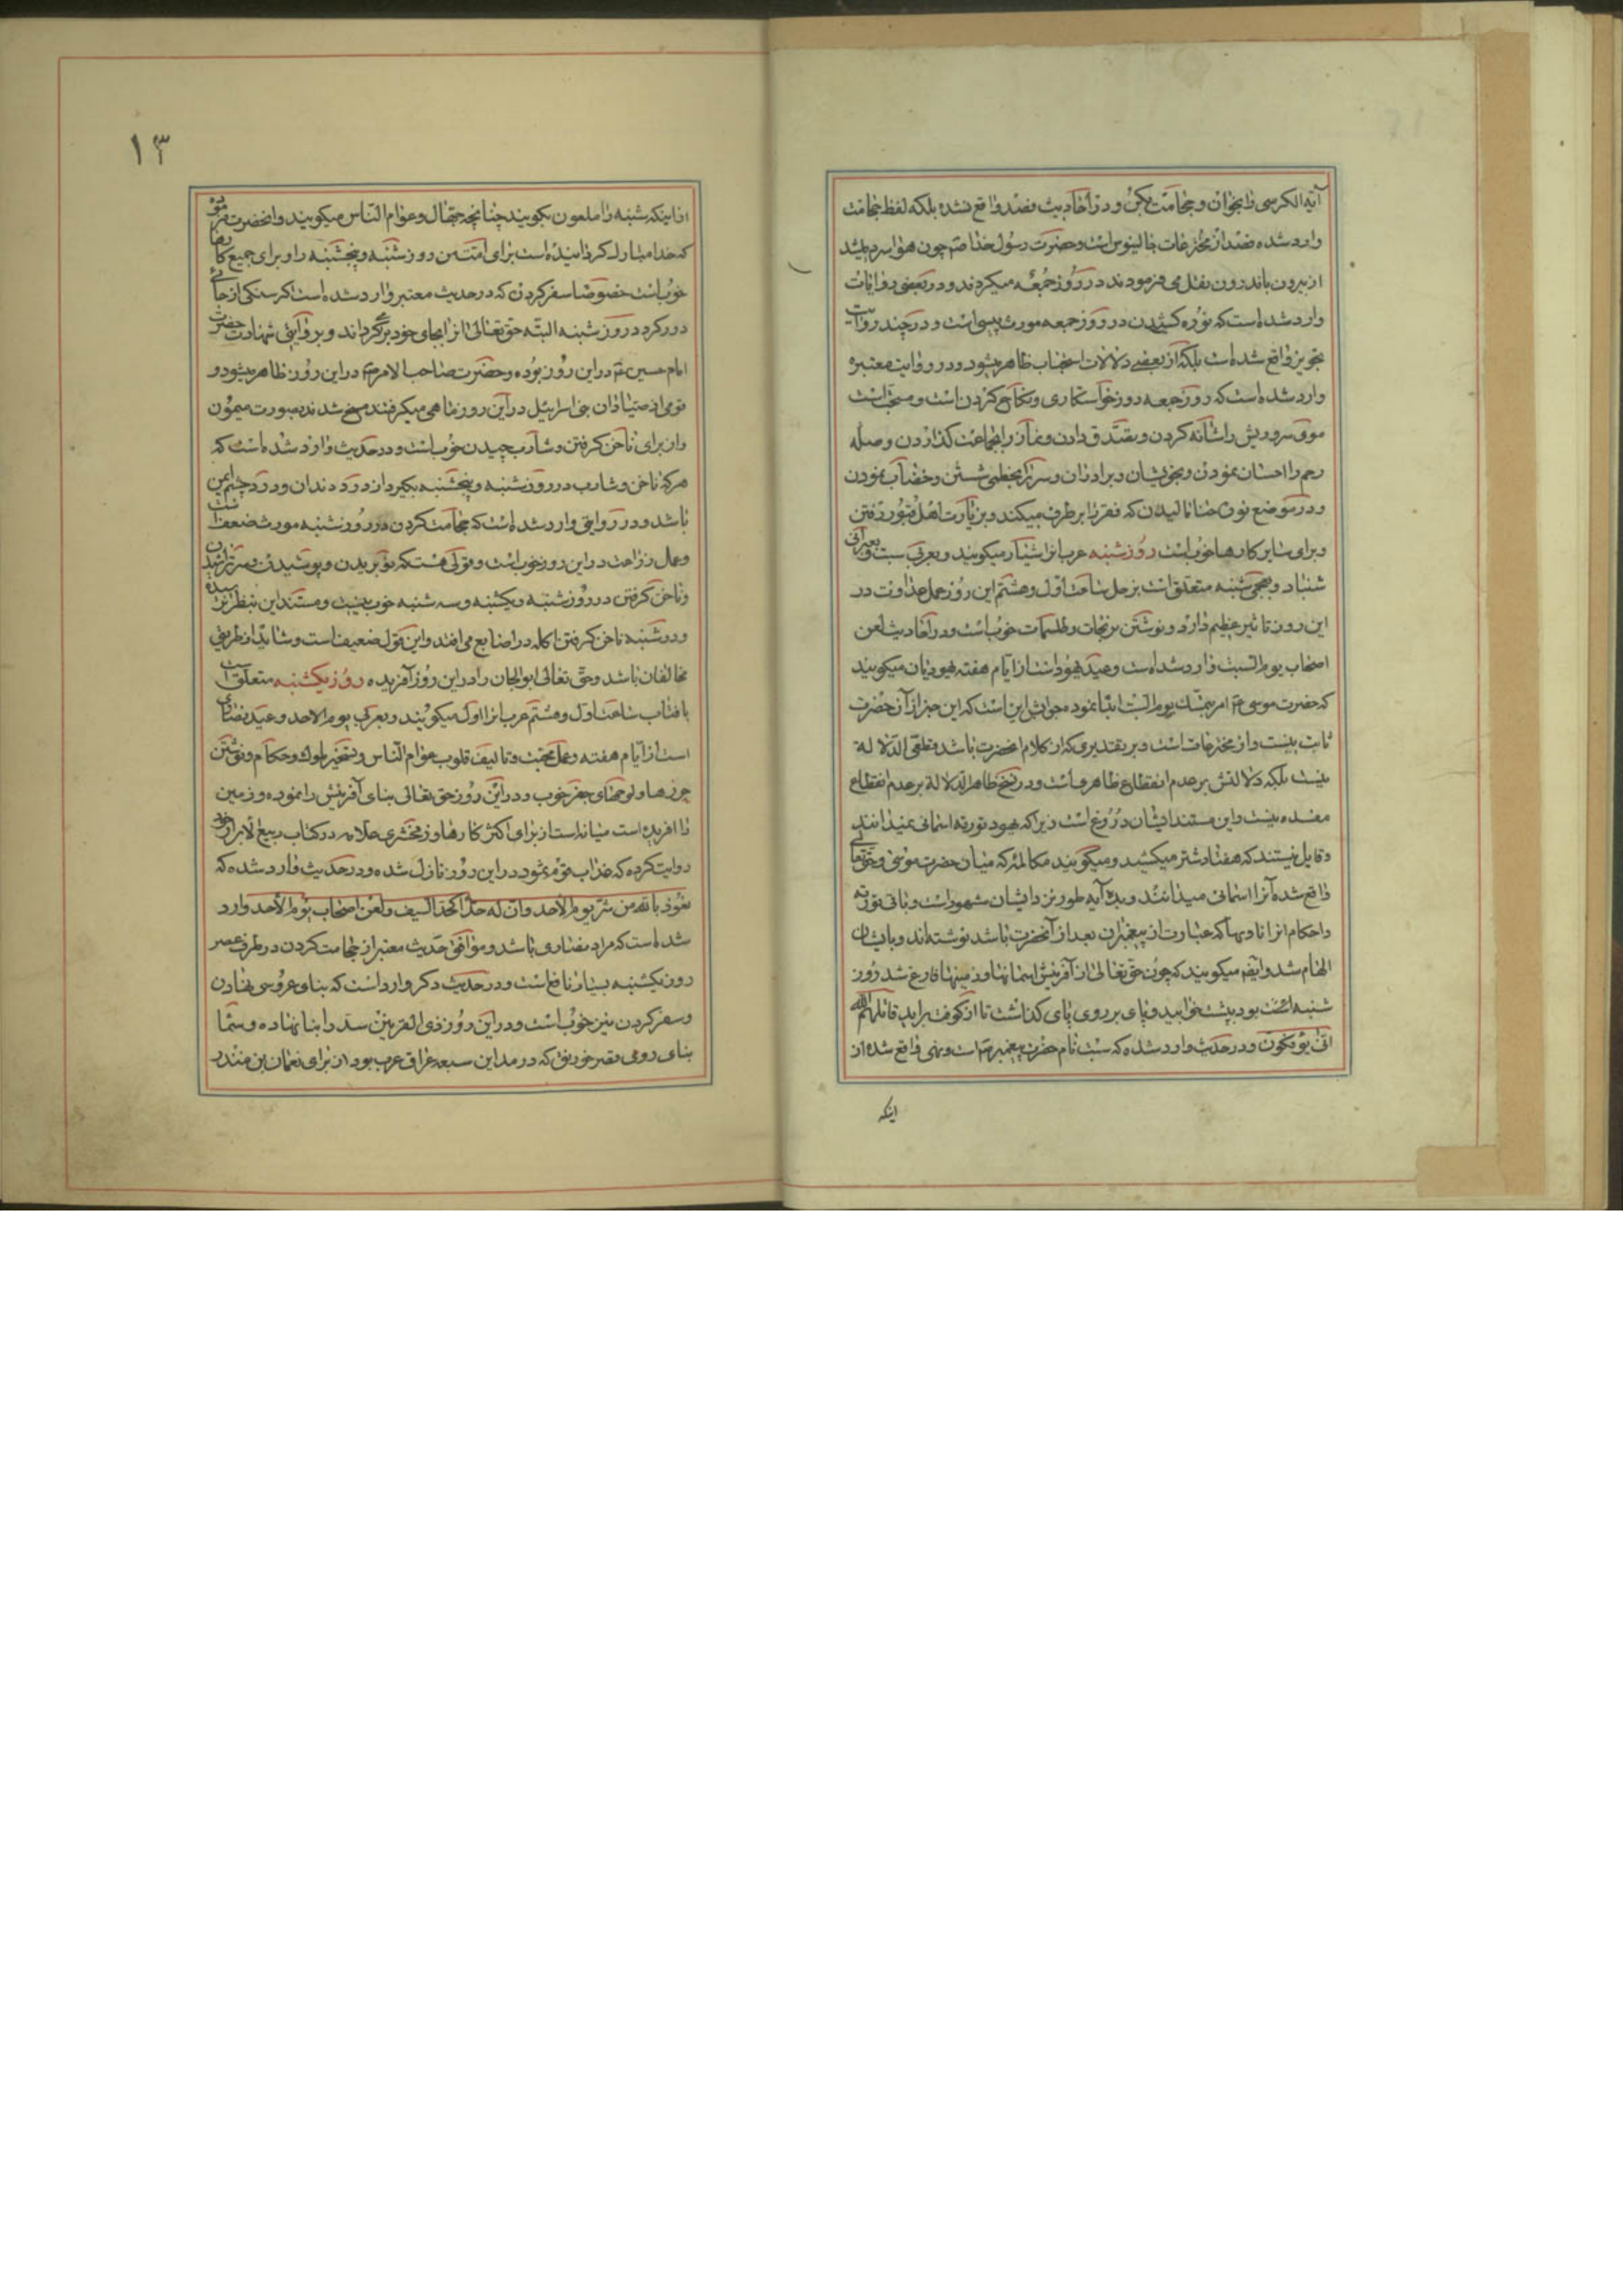 آیة الکرسی را بخوان و حجامت بکن و در احادیث فصد واقع نشده بلکه لفظ حجامت
وارد شده فصد از مخترعات جالینوس است و حضرت رسول خدا صم چون هوا سرد میشد
از بیرون باندرون نقل می فرمودند در روز جمعه میکردند و در بعضی روایات
وارد شده است که نوره کشیدن در روز جمعه مورث پیسی است و در چند روایت
تجویز واقع شده است بلکه از بعضی دلالات استحباب ظاهر میشود و در روایت معتبره
وارد شده است که روز جمعه روز خواستکاری و نکاح کردن است و مستحب است
موی سر و ریش را شانه کردن و تصدق دادن و نماز را بجماعت کذاردن و صله
رحم را احسان نمودن و بخویشان و برادران و سر را بخطمی شستن و خضاب نمودن
و در موضع نوره حنا مالیدن که فقر را بر طرف میکند و بزیارت اهل قبور رفتن
و برای سایر کارها خوب است روز شنبه عرب انرا شیار میکویند و بعربی سبت و بعبرانی
شنباد و بعجمی شنبه متعلق است بزحل ساعت اول و هشتم این روز عمل عداوت در
این روز تاثیر عظیم دارد و نوشتن نیرنجات و طلسمات خوب است و در احادیث لعن
اصحاب یوم السبت وارد شده است و عید یهود است از ایام هفته یهودیان میکویند
که حضرت موسی ع امر بتمسک یوم السبت ابدا نموده جوابش این است که این خبر از آن حضرت
ثابت نیست و از مخترعات است و بر تقدیری که از کلام انحضرت باشد قطعی الدلاله
نیست بلکه دلالتش بر عدم انقطاع ظاهر است و در نسخ ظاهر الدلاله بر عدم انقطاع
مفسده نیست و این مستند ایشان دروغ است زیرا که یهود توریه اسمانی نمیدانند
و قایل نیستند که هفتاد شتر میکشید و میکویند مکالمه که میان حضرت موسی و حقتعالی
واقع شده آنرا اسمانی میدانند و بده آیه طور نزد ایشان مشهور است و باقی توریه
و احکام انرا ناویها که عبارت از پیغمبران بعد از آنحضرت باشد نوشته اند و بایشان
الهام شد و ایضا میکویند که چون حق تعالی از آفرینش اسمانها و زمینها فارغ شد روز
شنبه بود بپشت خوابید و پای بر روی پای کذاشت تا از کوفت براید قاتلهم الله
انی یؤفکون و در حدیث وارد شده که سبت نام حضرت پیغمبر ص است و نهی واقع شده از
اینکه
۱۳
از اینکه شنبه را ملعون بکویند چنانچه جهال و عوام الناس میکویند و انحضرت فرمود
که خدا مبارک کردانیده است برای امت من روز شنبه و پنجشنبه را و برای جمیع کارها
خوب است خصوصا سفر کردن که در حدیث معتبر وارد شده است اکر سنکی از جائی
دور کرد در روز شنبه البته حق تعالی انرا بجای خود برکرداند و بروایتی شهادت حضرت
امام حسین ع در این روز بوده و حضرت صاحب الامر ع در این روز ظاهر میشود و
قومی از صیادان بنی اسرائیل در این روز ماهی میکرفتند مسخ شدند بصورت میمون
و از برای ناخن کرفتن و شارب چیدن خوب است و در حدیث وارد شده است که
هر که ناخن و شارب در روز شنبه و پنجشنبه بکیرد از درد دندان و درد چشم ایمن
باشد و در روایتی وارد شده است که حجامت کردن در روز شنبه مورث ضعف است
و عمل زراعت در این روز خوب است و قولی هست که نو بریدن و پوشیدن و سر تراشیدن
و ناخن کرفتن در روز شنبه و یکشنبه و سه شنبه خوب نیست و مستند این بنظر نرسیده
و در شنبه ناخن کرفتن اکله در اصابع می افتد و این قول ضعیف است و شاید از طریق
مخالفان باشد و حق تعالی ابوالجان را در این روز آفریده روز یکشنبه متعلق است
بافتاب ساعت اول و هشتم عرب انرا اول میکویند و بعربی یوم الاحد و عید نصاری
است از ایام هفته و عمل محبت و تالیف قلوب عوام الناس و تسخیر ملوک و حکام و نوشتن
حرزها و لوحهای جفر خوب و در این روز حق تعالی بنای آفرینش را نموده و زمین
را افریده است میانه است از برای اکثر کارها و زمخشری علامه در کتاب ربیع الابرار خود
روایت کرده که عذاب قوم ثمود در این روز نازل شده و در حدیث وارد شده که
نعوذ بالله من شر یوم الاحد وان له حدا کحد السیف و لعن اصحاب یوم الاحد وارد
شده است که مراد نصاری باشد و موافق حدیث معتبر از حجامت کردن در طرف عصر
روز یکشنبه بسیار نافع است و در حدیث دکر وارد است که بنای عروسی نهادن
و سفر کردن نیز خوب است و در این روز ذی القرنین سد را بنا نهاده و سنمار
بنای رومی قصر خورنق که در مداین سبعه عراق عرب بود از برای نعمان بن منذر